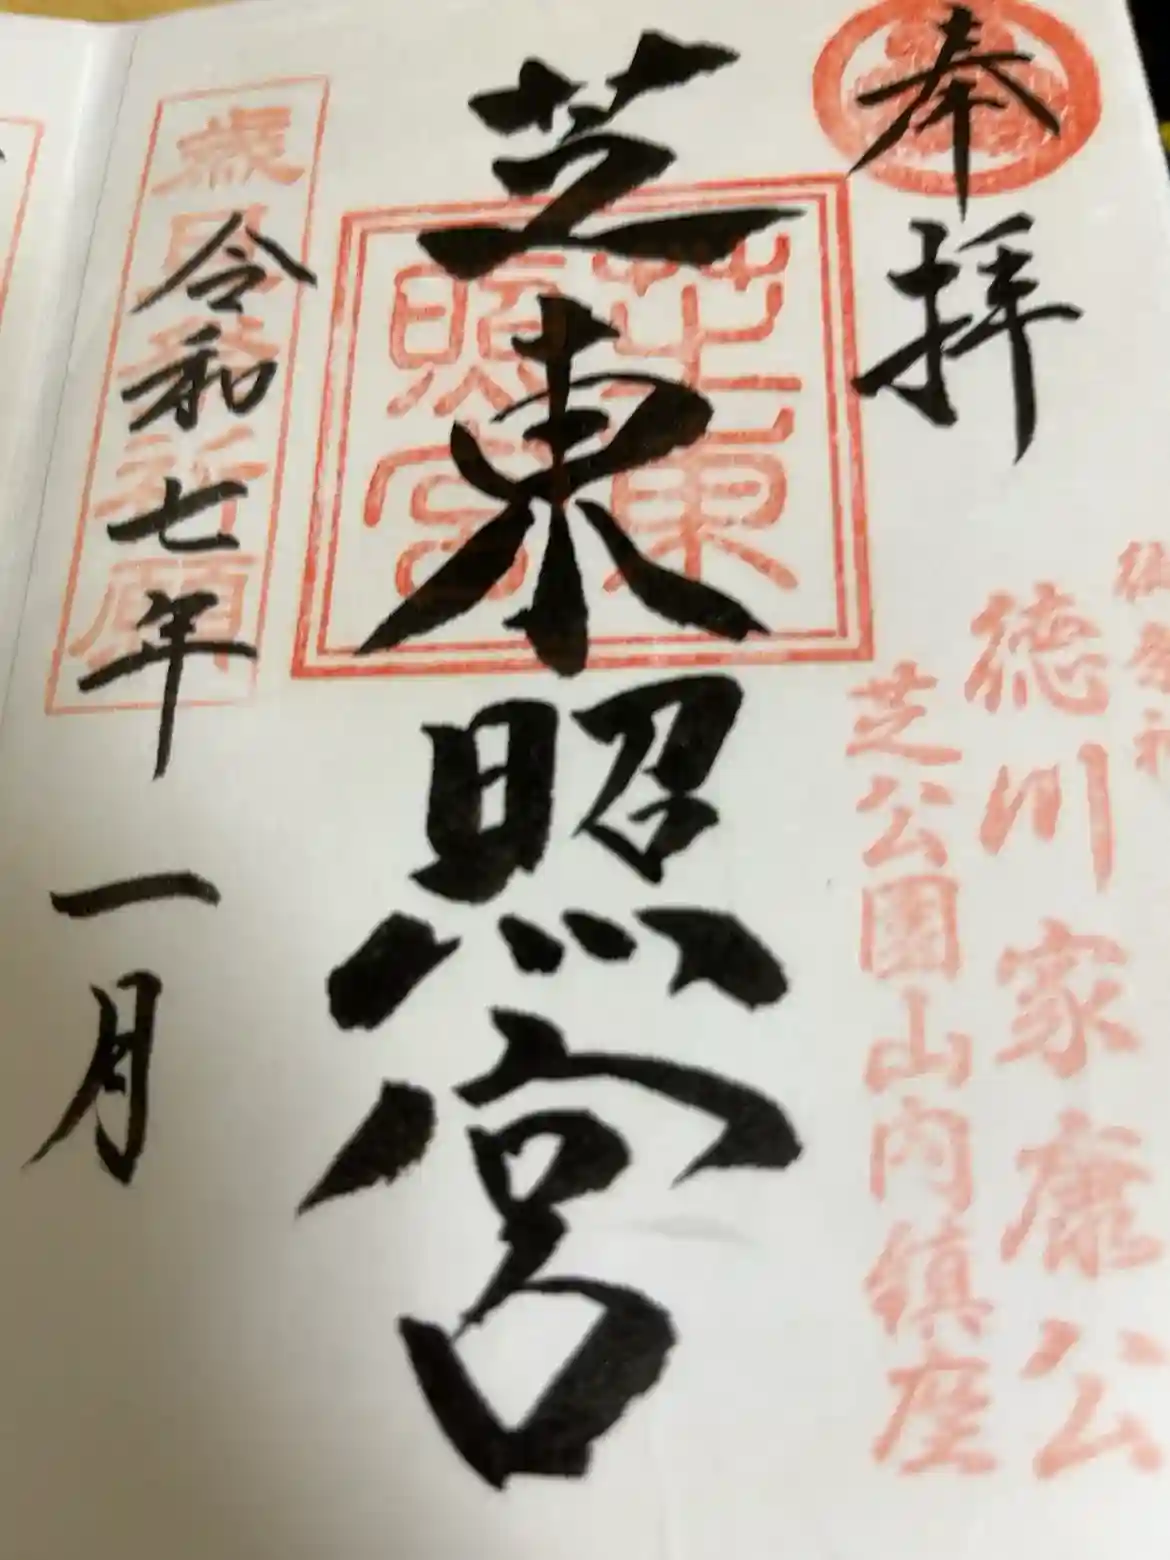 奉拝
御祭神
徳川家康公
芝公園山内鎮座
芝東照宮
芝東照宮
令和七年
一月
歳旦発祈願